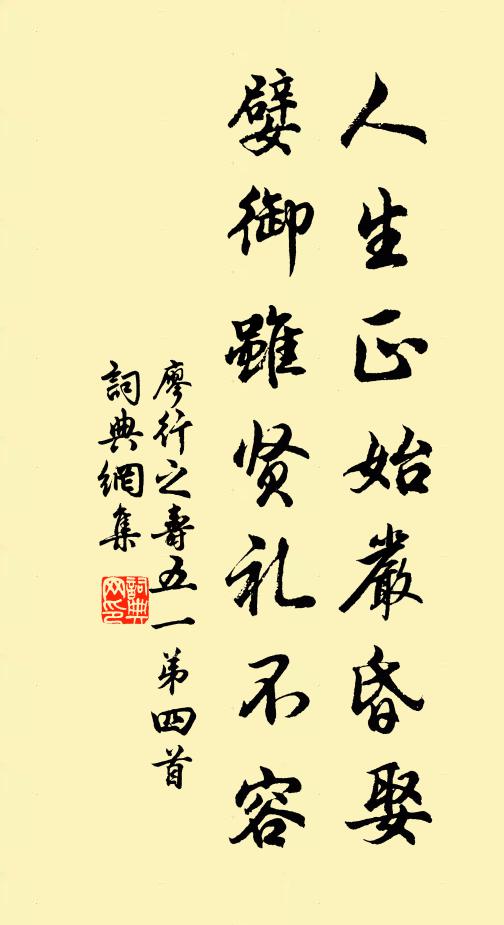 人生正始嚴昏娶
嬖御雖贤礼不容
廖行之壽五一第四首
詞典網集
詞典网印